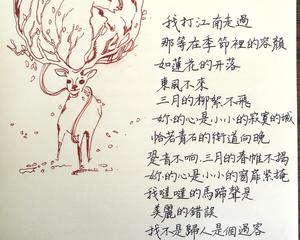 我打江南走過
那等在季節裡的容顏
如蓮花的开落
東風不來
三月的柳絮不飛
妳的心是小小的寂寞的城
恰若青石的街道向晚
跫音不响三月的春帷不揭
妳的心是小小的窗扉緊掩
我噠噠的馬蹄聲是
美麗的錯誤
我不是歸人是個過客